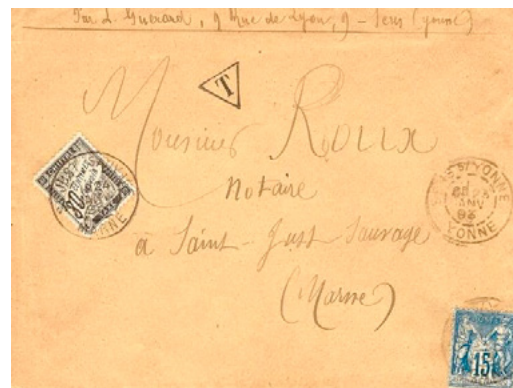 Par L. Guérard, 9 Rue de Lyon, 9 - Sens (Yonne)
T
Monsieur Roux
Notaire
à Saint-Just Sauvage
(Marne)
YONNE
JANV
93
YONNE
30
15